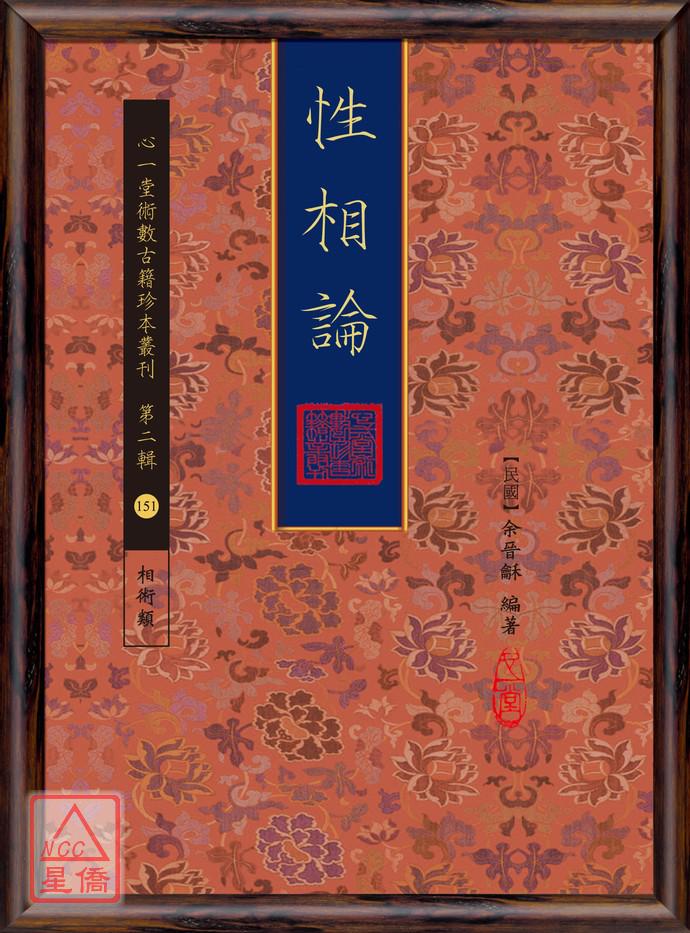 性相論
心一堂術數古籍珍本叢刊 第二輯
151
相術類
【民國】余晉龢 編著
心一堂
NCC
星僑